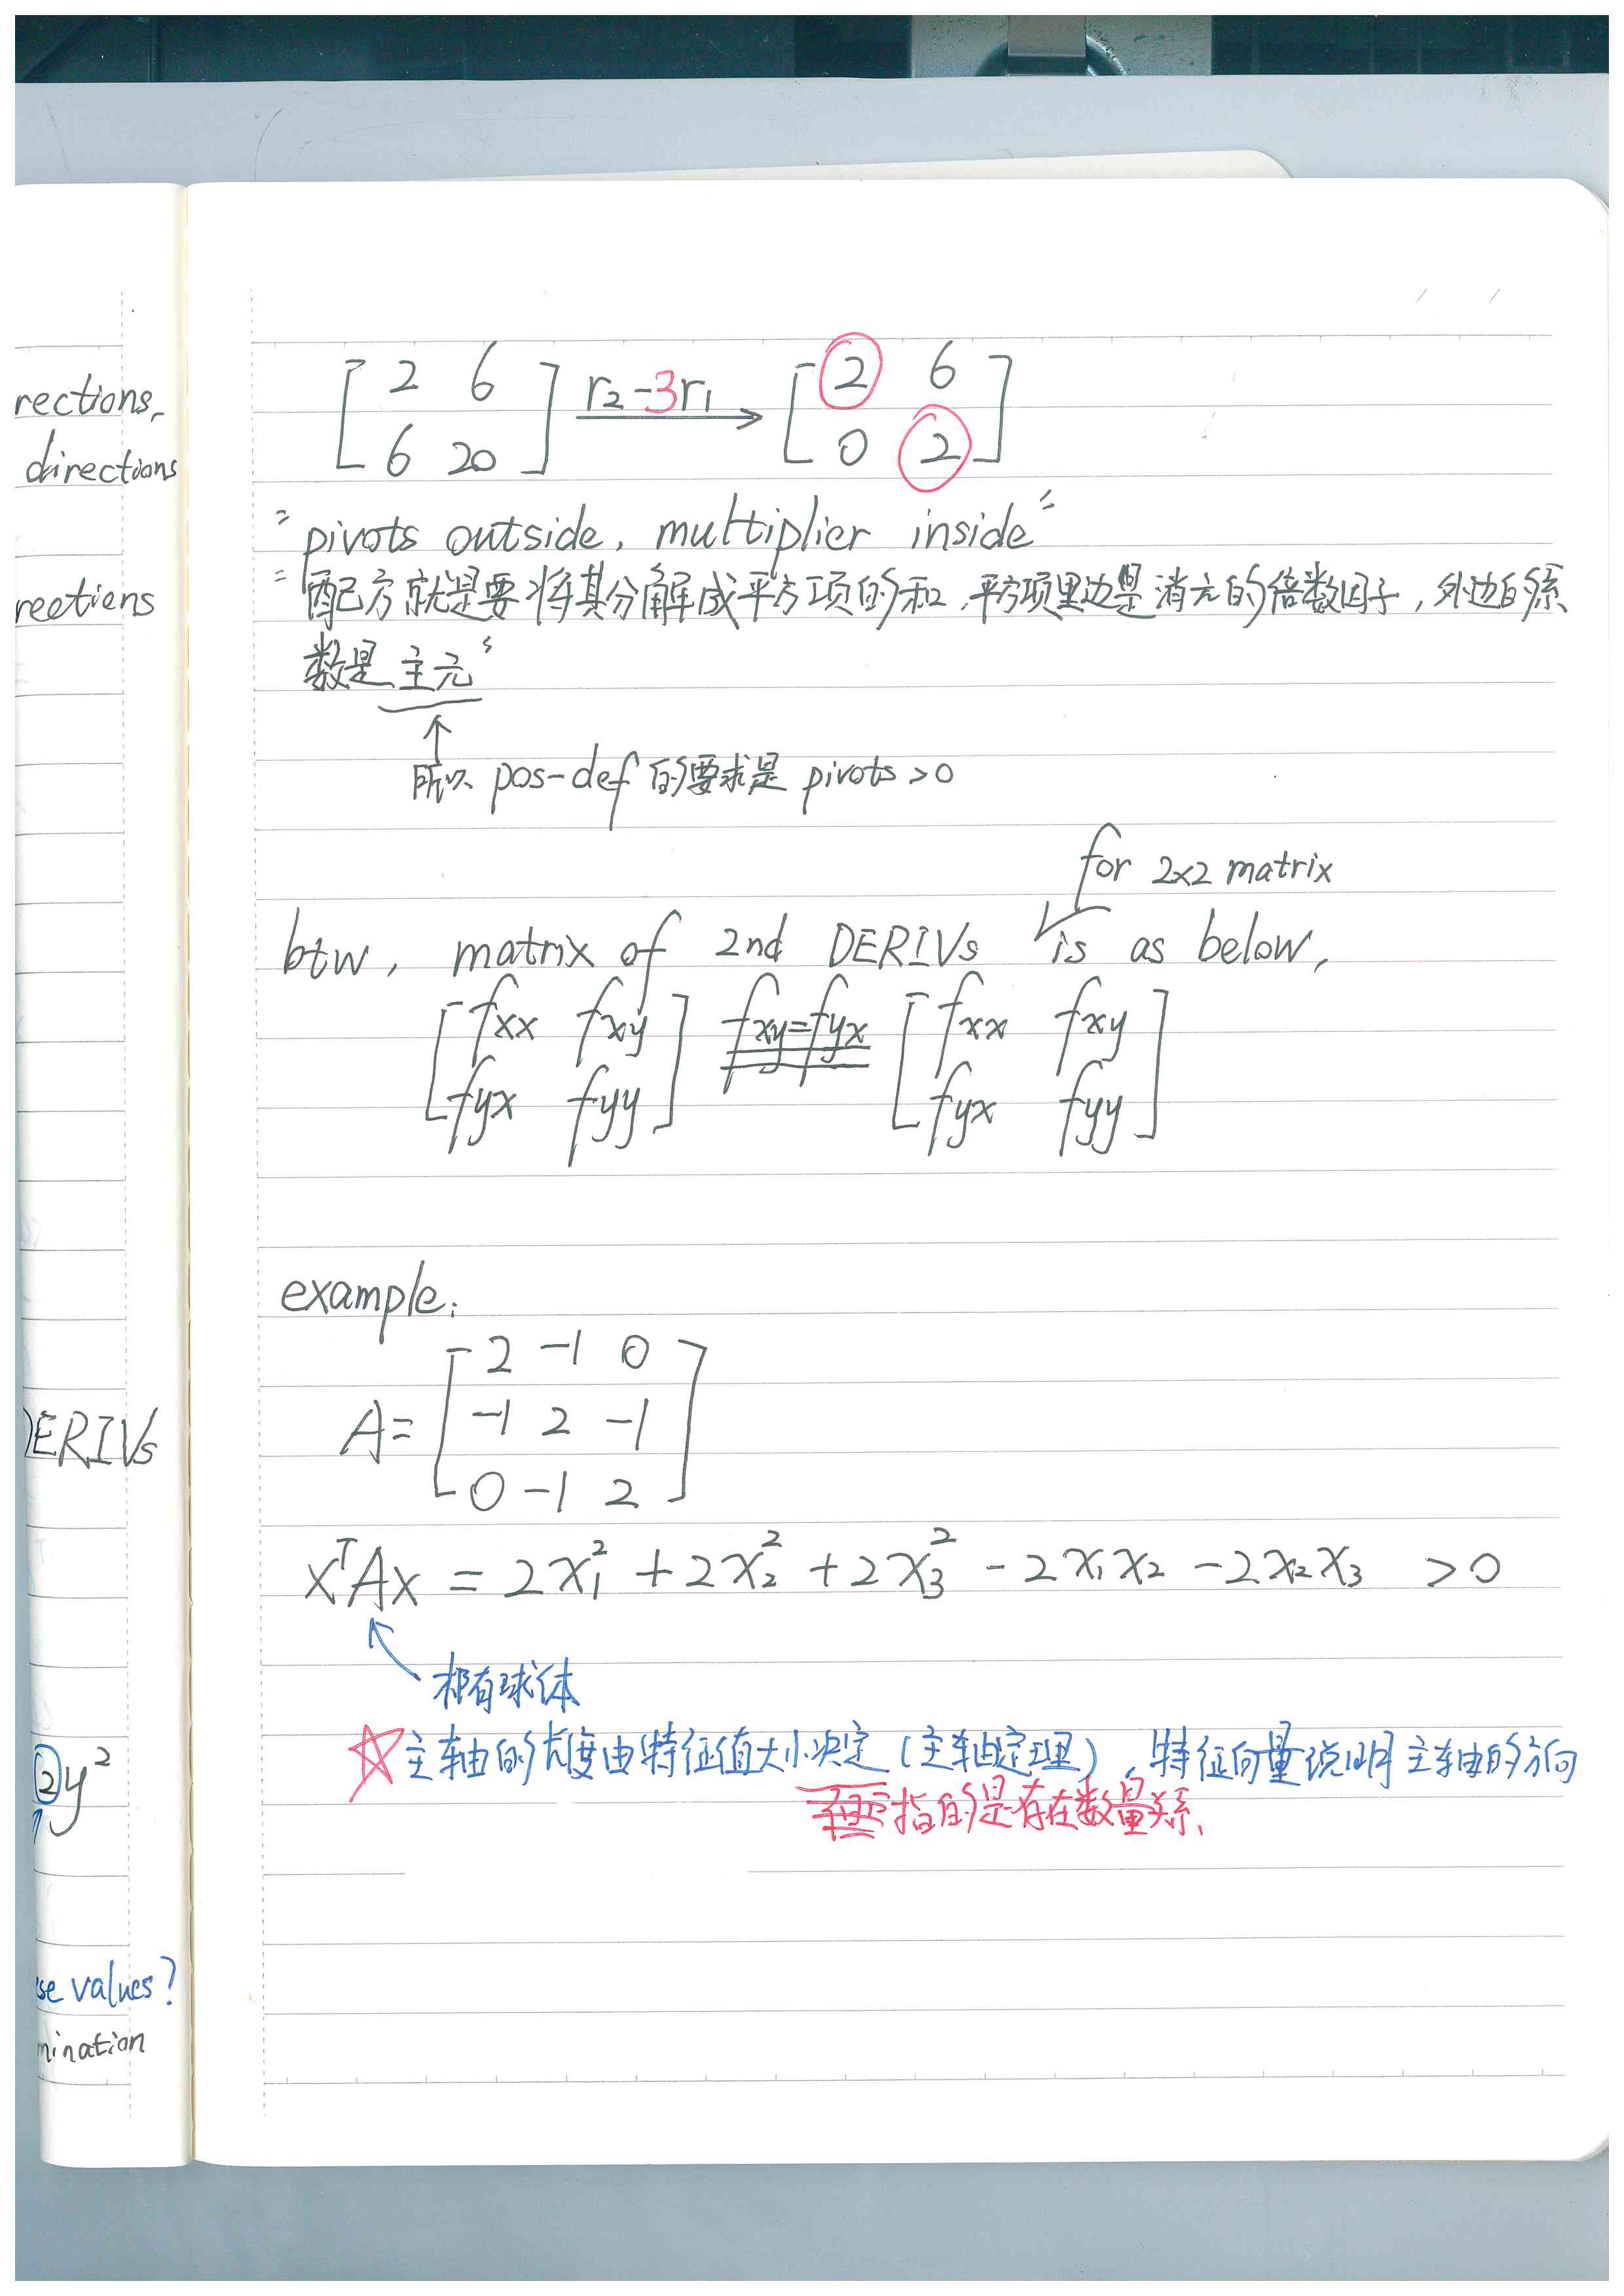 rections,
directions
reetiens
DERIVs
②y²
ese values?
mination
[2 6; 6 20] r₂-3r₁→ [2 6; 0 2]
"pivots outside, multiplier inside"
"配方就是要将其分解成平方项的和,平方项里边是消元的倍数因子,外边的系
数是主元"
↑
所以 pos-def 的要求是 pivots >0
for 2x2 matrix
btw, matrix of 2nd DERIVs is as below,
[fxx fxy; fyx fyy] fxy=fyx [fxx fxy; fyx fyy]
example:
A= [2 -1 0; -1 2 -1; 0 -1 2]
xᵀAx = 2x₁² + 2x₂² + 2x₃² - 2x₁x₂ - 2x₂x₃ >0
球体
☆主轴的长度由特征值大小决定(主轴定理),特征向量说明主轴的方向
指的是存在数量关系.